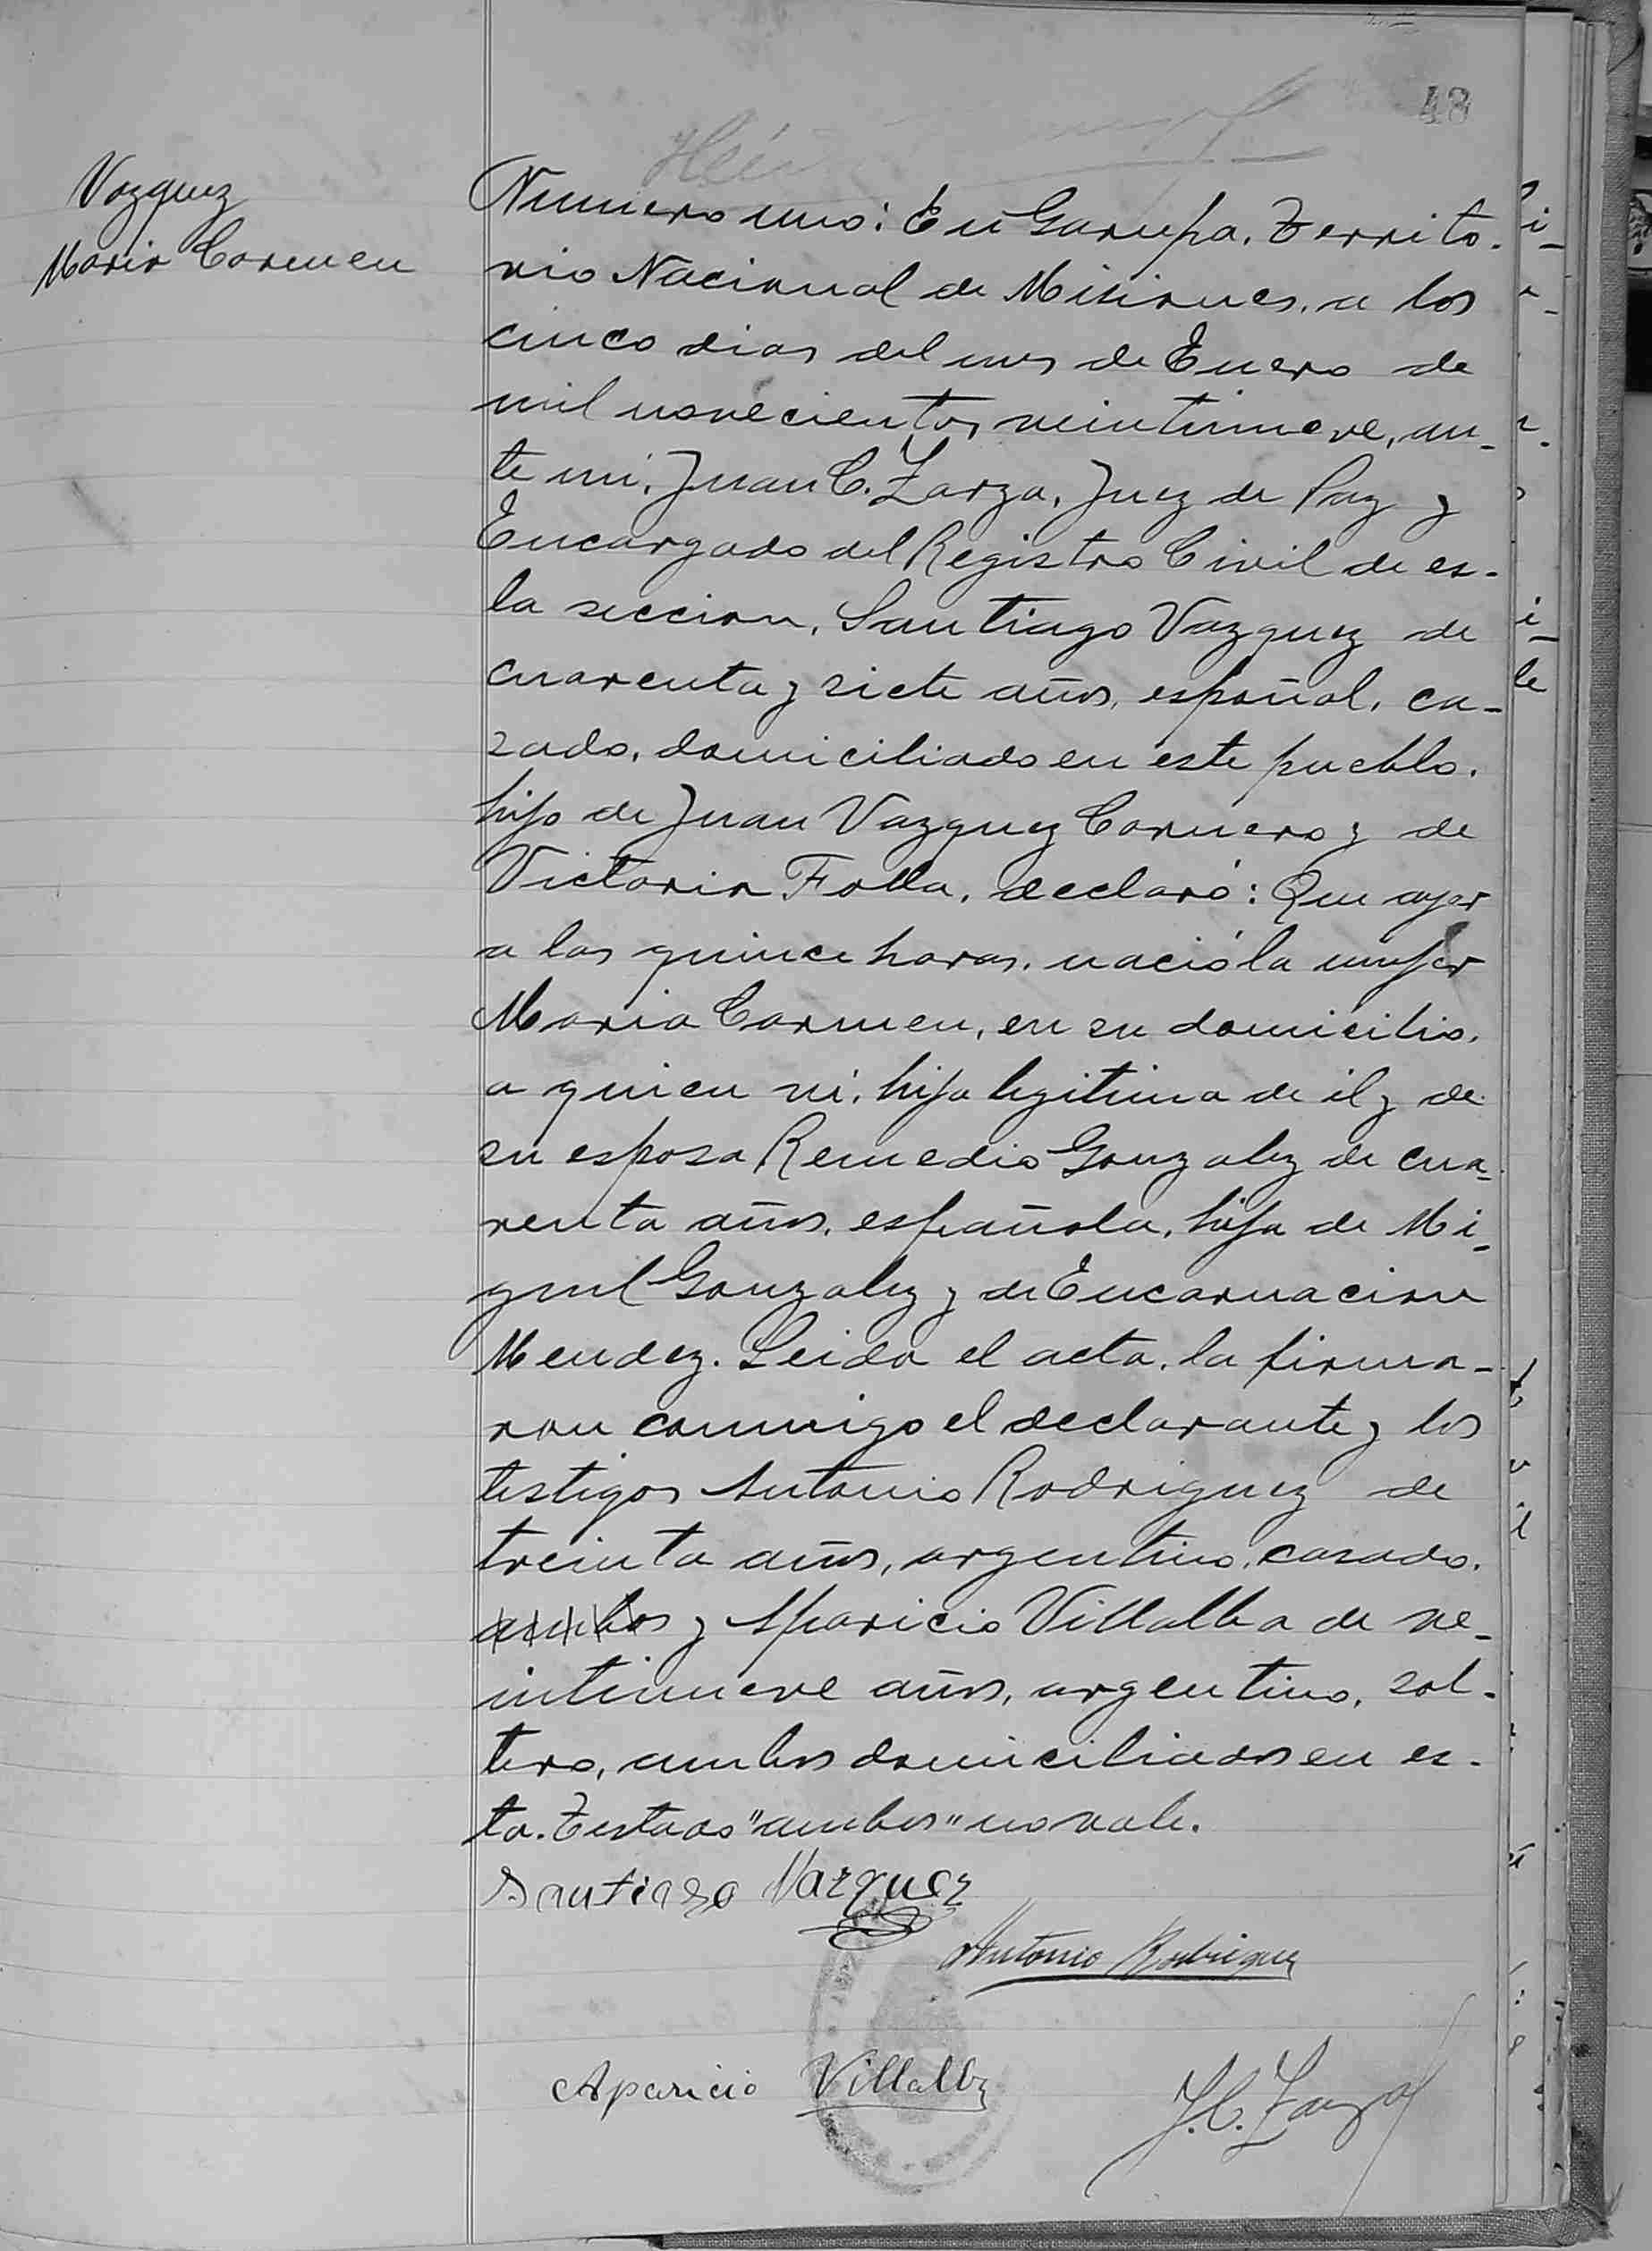 48
Vazquez
Maria Carmen
Numero uno: En Garupa, Territo-
rio Nacional de Misiones, a los
cinco dias del mes de Enero de
mil novecientos veintinueve, an-
te mi, Juan C. Zarza, Juez de Paz y
Encargado del Registro Civil de es-
ta seccion, Santiago Vazquez de
cuarenta y siete años, español, ca-
sado, domiciliado en este pueblo,
hijo de Juan Vazquez Carnero y de
Victoria Folla, declaró: Que ayer
a las quince horas, nació la mujer
Maria Carmen, en su domicilio,
a quien vi, hija legitima de él y de
su esposa Remedio Gonzalez de cua-
renta años, española, hija de Mi-
guel Gonzalez y de Encarnacion
Mendez. Leida el acta, la firma-
ron conmigo el declarante y los
testigos Antonio Rodriguez de
treinta años, argentino, casado,
ambos y Aparicio Villalba de ve-
intinueve años, argentino, sol-
tero, ambos domiciliados en es-
ta. Testado "ambos" no vale.
Santiago Vazquez
Antonio Rodriguez
Aparicio Villalba
J. C. Zarza